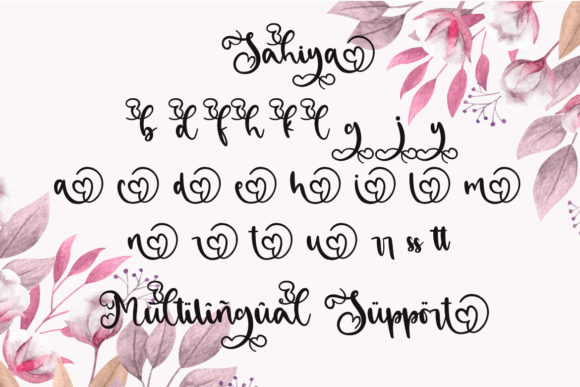 Sahiya
b d f h k l g j y
a c d e h i l m
n r t u rr ss tt
Mültiliñgûal Süppört